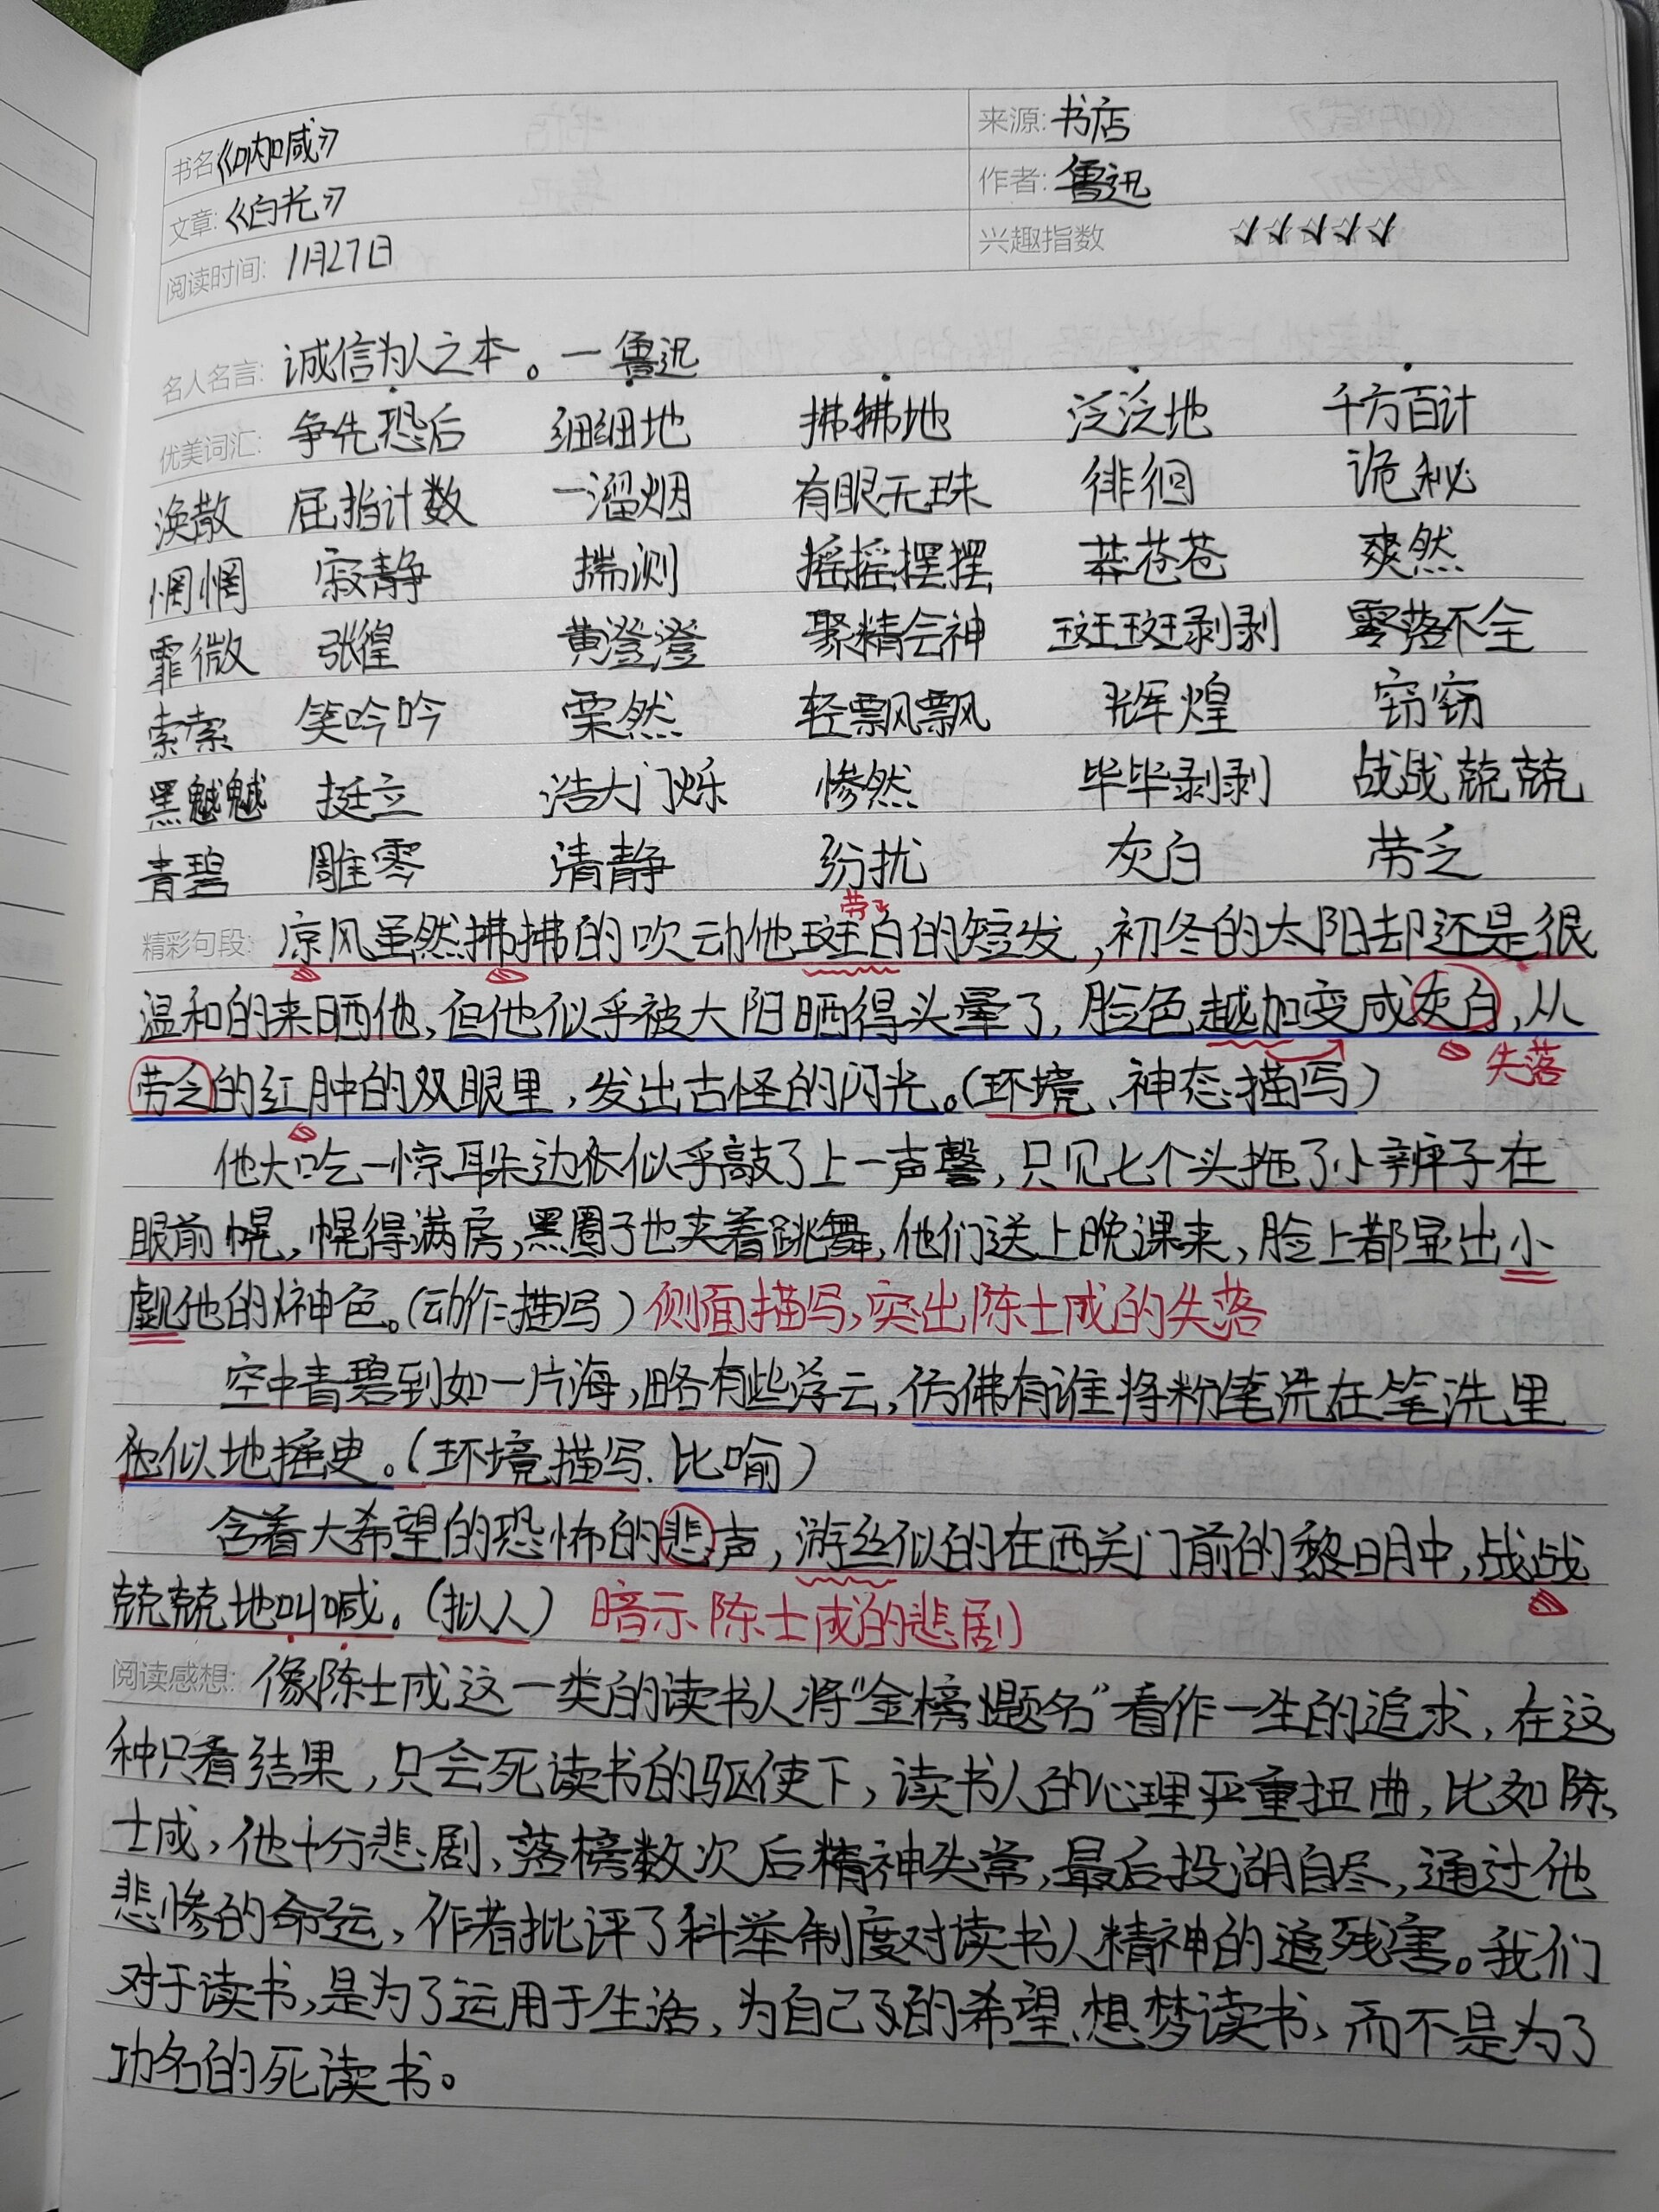 书名《呐喊》 来源:书店
文章:《白光》 作者:鲁迅
阅读时间:1月27日 兴趣指数
名人名言:诚信为人之本。—鲁迅
优美词汇: 争先恐后 细细地 拂拂地 泛泛地 千方百计
涣散 屈指计数 一溜烟 有眼无珠 徘徊 诡秘
惘惘 寂静 揣测 摇摇摆摆 莽苍苍 爽然
霏微 张徨 黄澄澄 聚精会神 斑斑剥剥 零落不全
索索 笑吟吟 栗然 轻飘飘 辉煌 窃窃
黑魆魆 挺立 浩大闪烁 惨然 毕毕剥剥 战战兢兢
青碧 雕零 清静 纷扰 灰白 劳乏
精彩句段: 凉风虽然拂拂的吹动他斑白的短发,初冬的太阳却还是很
温和的来晒他,但他似乎被太阳晒得头晕了,脸色越加变成灰白,从
失落
劳乏的红肿的双眼里,发出古怪的闪光。(环境、神态描写)
他大吃一惊耳朵边依似乎敲了上一声磬,只见七个头拖了小辫子在
眼前幌,幌得满房,黑圈子也夹着跳舞,他们送上晚课来,脸上都显出小
觑他的神色。(动作描写)侧面描写,突出陈士成的失落
空中青碧到如一片海,略有些浮云,仿佛有谁将粉笔洗在笔洗里
他似地摇曳。(环境描写、比喻)
含着大希望的恐怖的悲声,游丝似的在西关门前的黎明中,战战
兢兢地叫喊。(拟人) 暗示陈士成的悲剧
阅读感想: 像陈士成这一类的读书人将“金榜题名”看作一生的追求,在这
种只看结果,只会死读书的驱使下,读书人的心理严重扭曲,比如陈
士成,他十分悲剧,落榜数次后精神失常,最后投湖自尽,通过他
悲惨的命运,作者批评了科举制度对读书人精神的残害。我们
对于读书,是为了运用于生活,为自己的希望、想梦读书,而不是为了
功名的死读书。